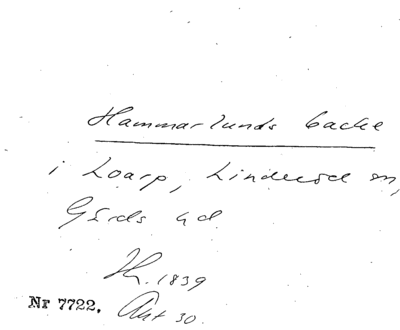 Hammarlunds backe
i Loarp, Linderöd sn,
Gärds hd
1839
Nr 7722. Akt 30.